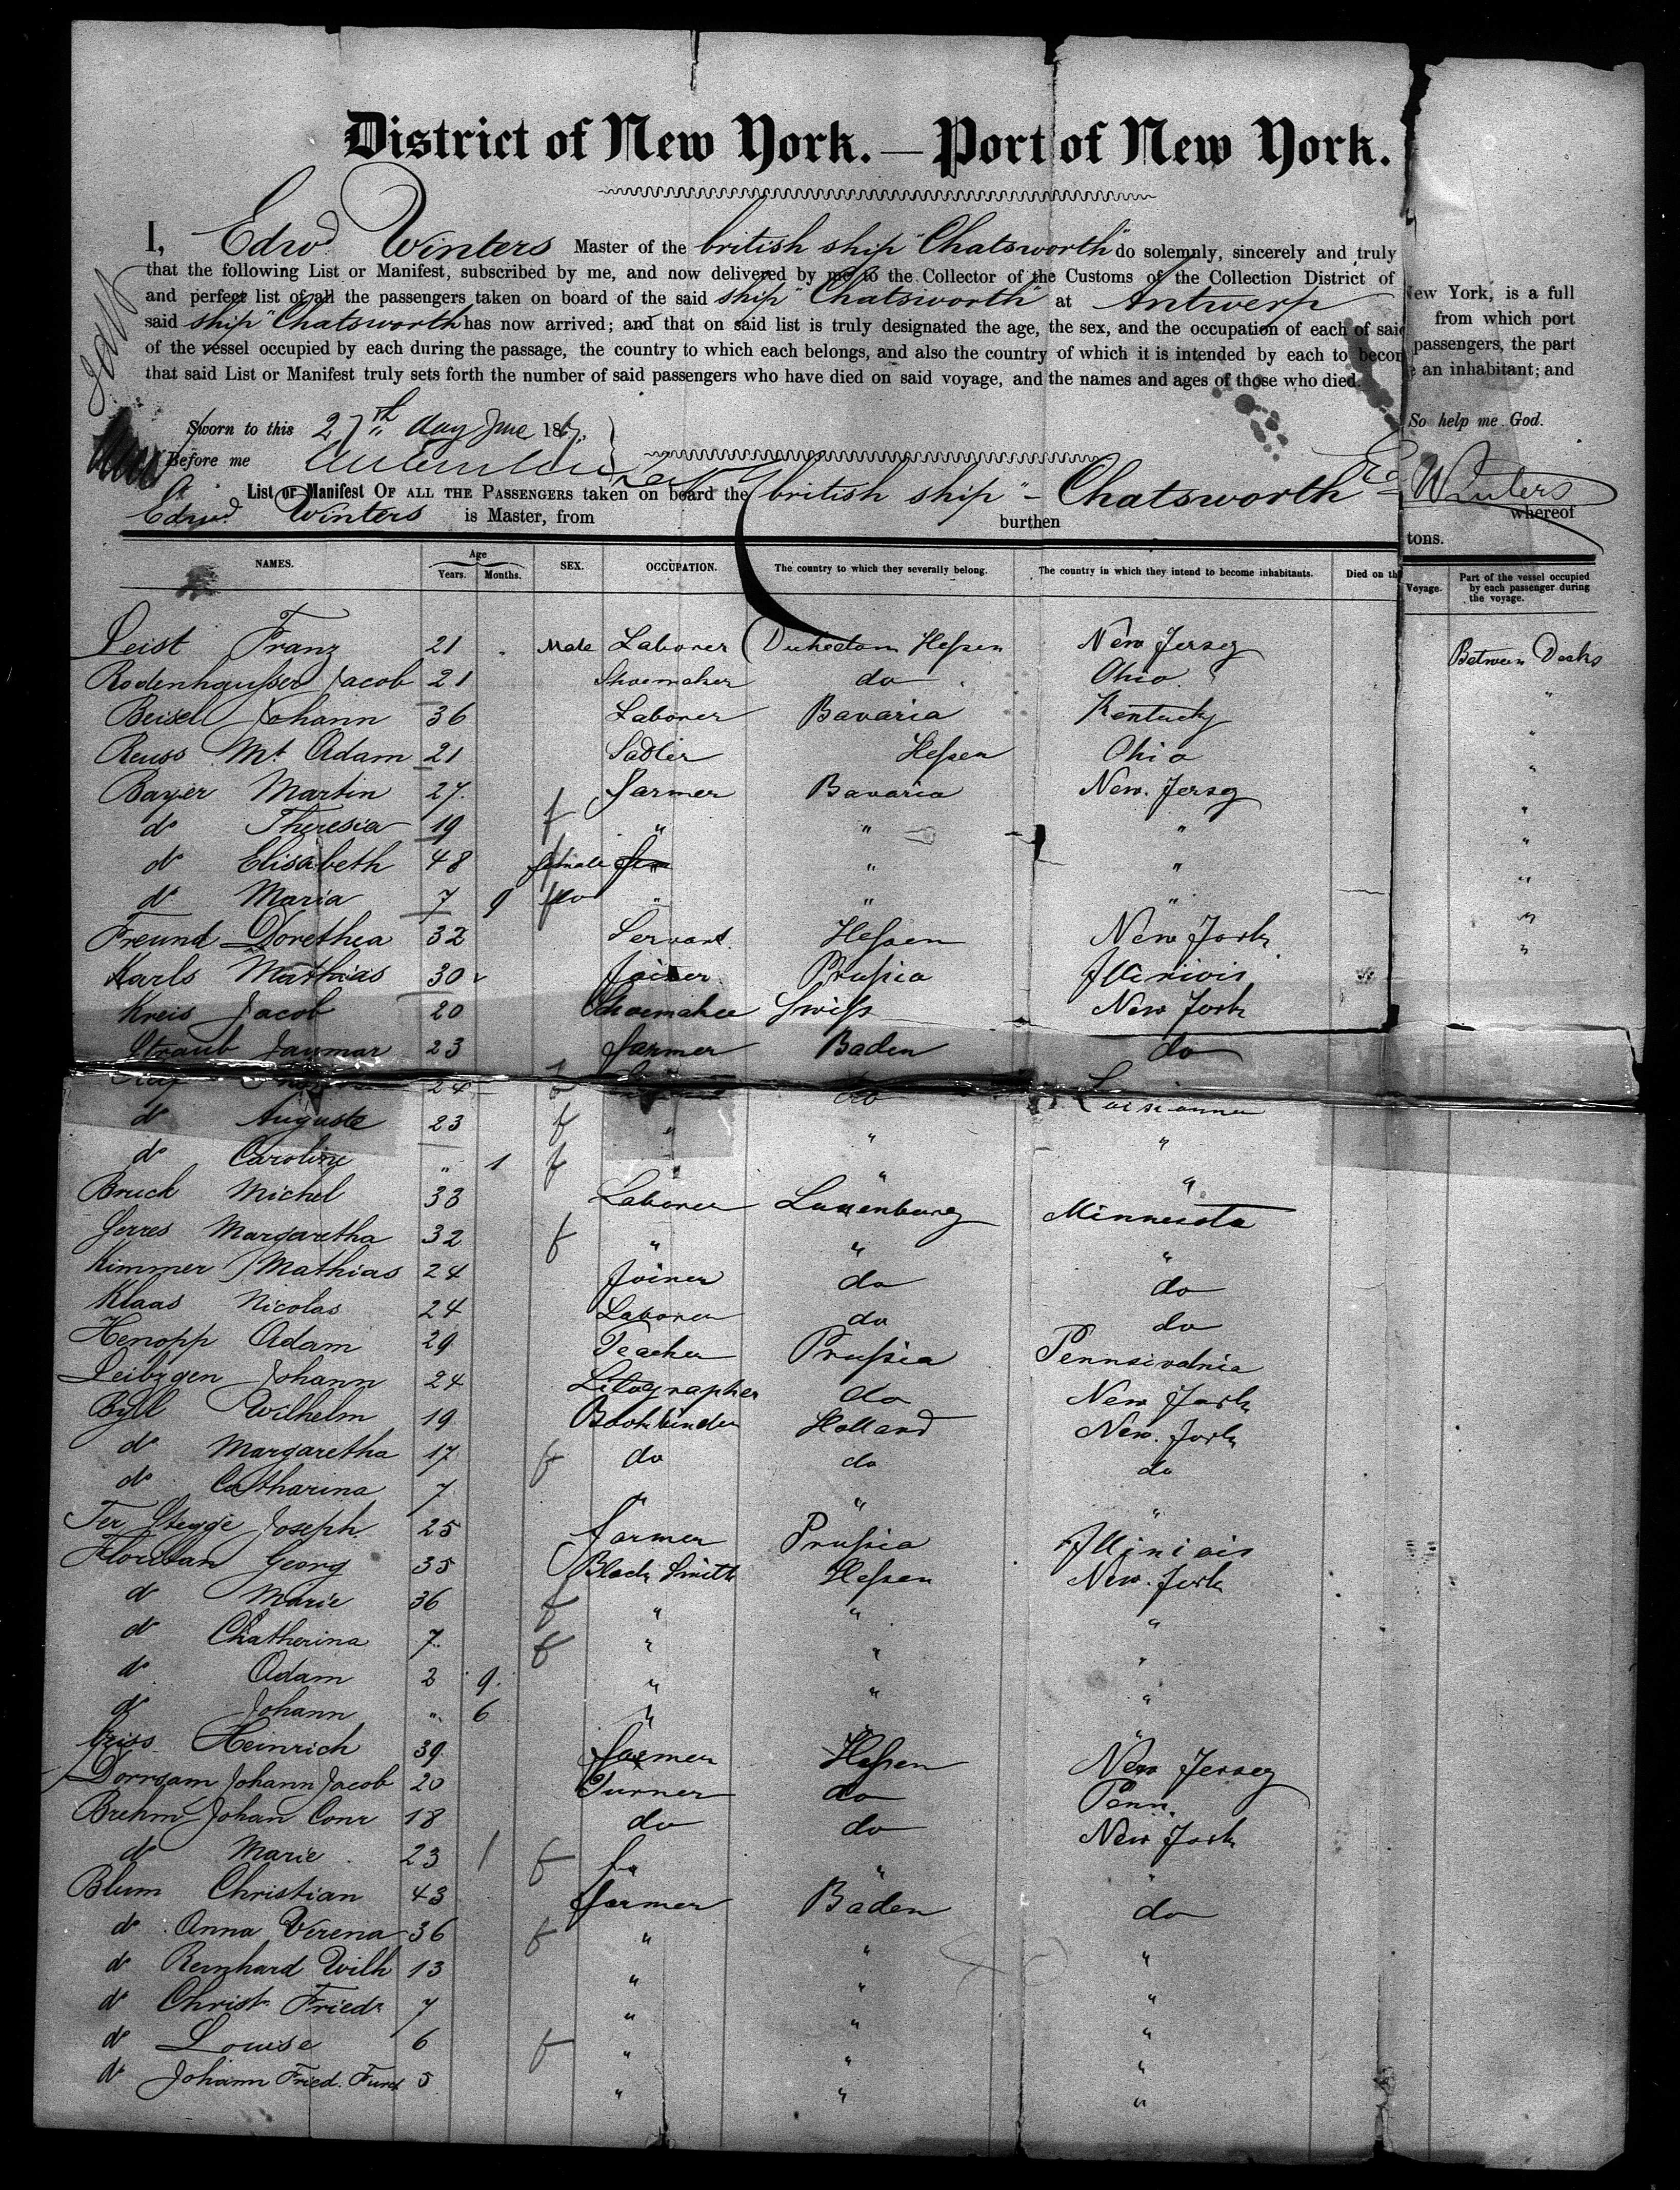 District of New York.—Port of New York.
I, Edwd Winters Master of the british ship "Chatsworth" do solemnly, sincerely and truly
that the following List or Manifest, subscribed by me, and now delivered by me to the Collector of the Customs of the Collection District of New York, is a full
and perfect list of all the passengers taken on board of the said ship "Chatsworth" at Antwerp from which port
said ship "Chatsworth has now arrived; and that on said list is truly designated the age, the sex, and the occupation of each of said passengers, the part
of the vessel occupied by each during the passage, the country to which each belongs, and also the country of which it is intended by each to become an inhabitant; and
that said List or Manifest truly sets forth the number of said passengers who have died on said voyage, and the names and ages of those who died.
So help me God.
Sworn to this 27th day June 186
Before me
Edwd Winters
List or Manifest OF ALL THE PASSENGERS taken on board the british ship "Chatsworth whereof
Edwd Winters is Master, from burthen tons.
NAMES. Age Years. Months. SEX. OCCUPATION. The country to which they severally belong. The country in which they intend to become inhabitants. Died on the Voyage. Part of the vessel occupied by each passenger during the voyage.
Leist Franz 21 Male Laborer Hessen New Jersey Between Decks
Rodenhausser Jacob 21 Shoemaker do Ohio "
Beisel Johann 36 Laborer Bavaria Kentucky "
Reuss Mt Adam 21 Sadler Hessen Ohio "
Bayer Martin 27 farmer Bavaria New Jersey "
do Theresia 19 f " " " "
do Elisabeth 48 female " " " "
do Maria 7 9 do " " " "
Freund Dorethea 32 Servant Hessen New York "
Karls Mathias 30 Joiner Prussia Illiniois
Kreis Jacob 20 Shoemaker Swiss New York
Straub 23 farmer Baden do
24 f do
do Auguste 23 f " " "
do Caroline " 1 f " " "
Bruck Michel 33 Laborer Luxenburg Minnesota
Jerres Margaretha 32 f " " "
Kimmer Mathias 24 Joiner do do
Klaas Nicolas 24 Laborer do do
Henopp Adam 29 Teacher Prussia Pennsivalnia
Leibzgen Johann 24 Litographer do New York
Byll Wilhelm 19 Bookbinder Holland New York
do Margaretha 17 f do do do
do Catharina 7 " " "
Ter Stegge Joseph 25 farmer Prussia Illiniois
Georg 35 Black Smith Hessen New York
do Marie 36 f " " "
do Chatherina 7 f " " "
do Adam 2 9 " " "
do Johann " 6 " " "
Heinrich 39 farmer Hessen New Jersey
Dorrsam Johann Jacob 20 Turner do Penn.
Brehm Johan Conr 18 do do New York
do Marie 23 f " " "
Blum Christian 43 farmer Baden do
do Anna Verena 36 f " " "
do Reinhard Wilh 13 " " "
do Christ Friedr 7 " " "
do Louise 6 f " " "
do Johann Fried. 5 " " "